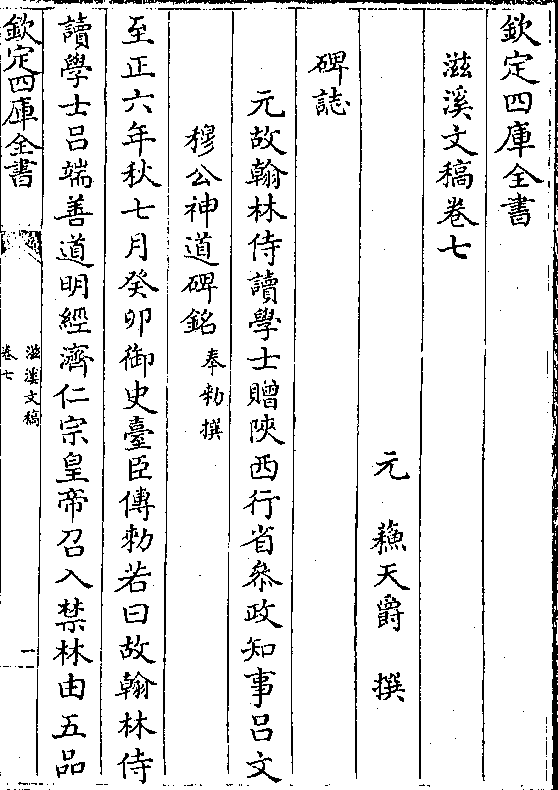 欽定四庫全書
滋溪文稿卷七
元 蘓天爵 撰
碑誌
元故翰林侍讀學士贈陜西行省叅政知事吕文
穆公神道碑銘奉勑撰
至正六年秋七月癸卯御史臺臣傳勑若曰故翰林侍
讀學士吕端善道明經濟仁宗皇帝召入禁林由五品
欽定四庫全書
滋溪文稿
卷七
一